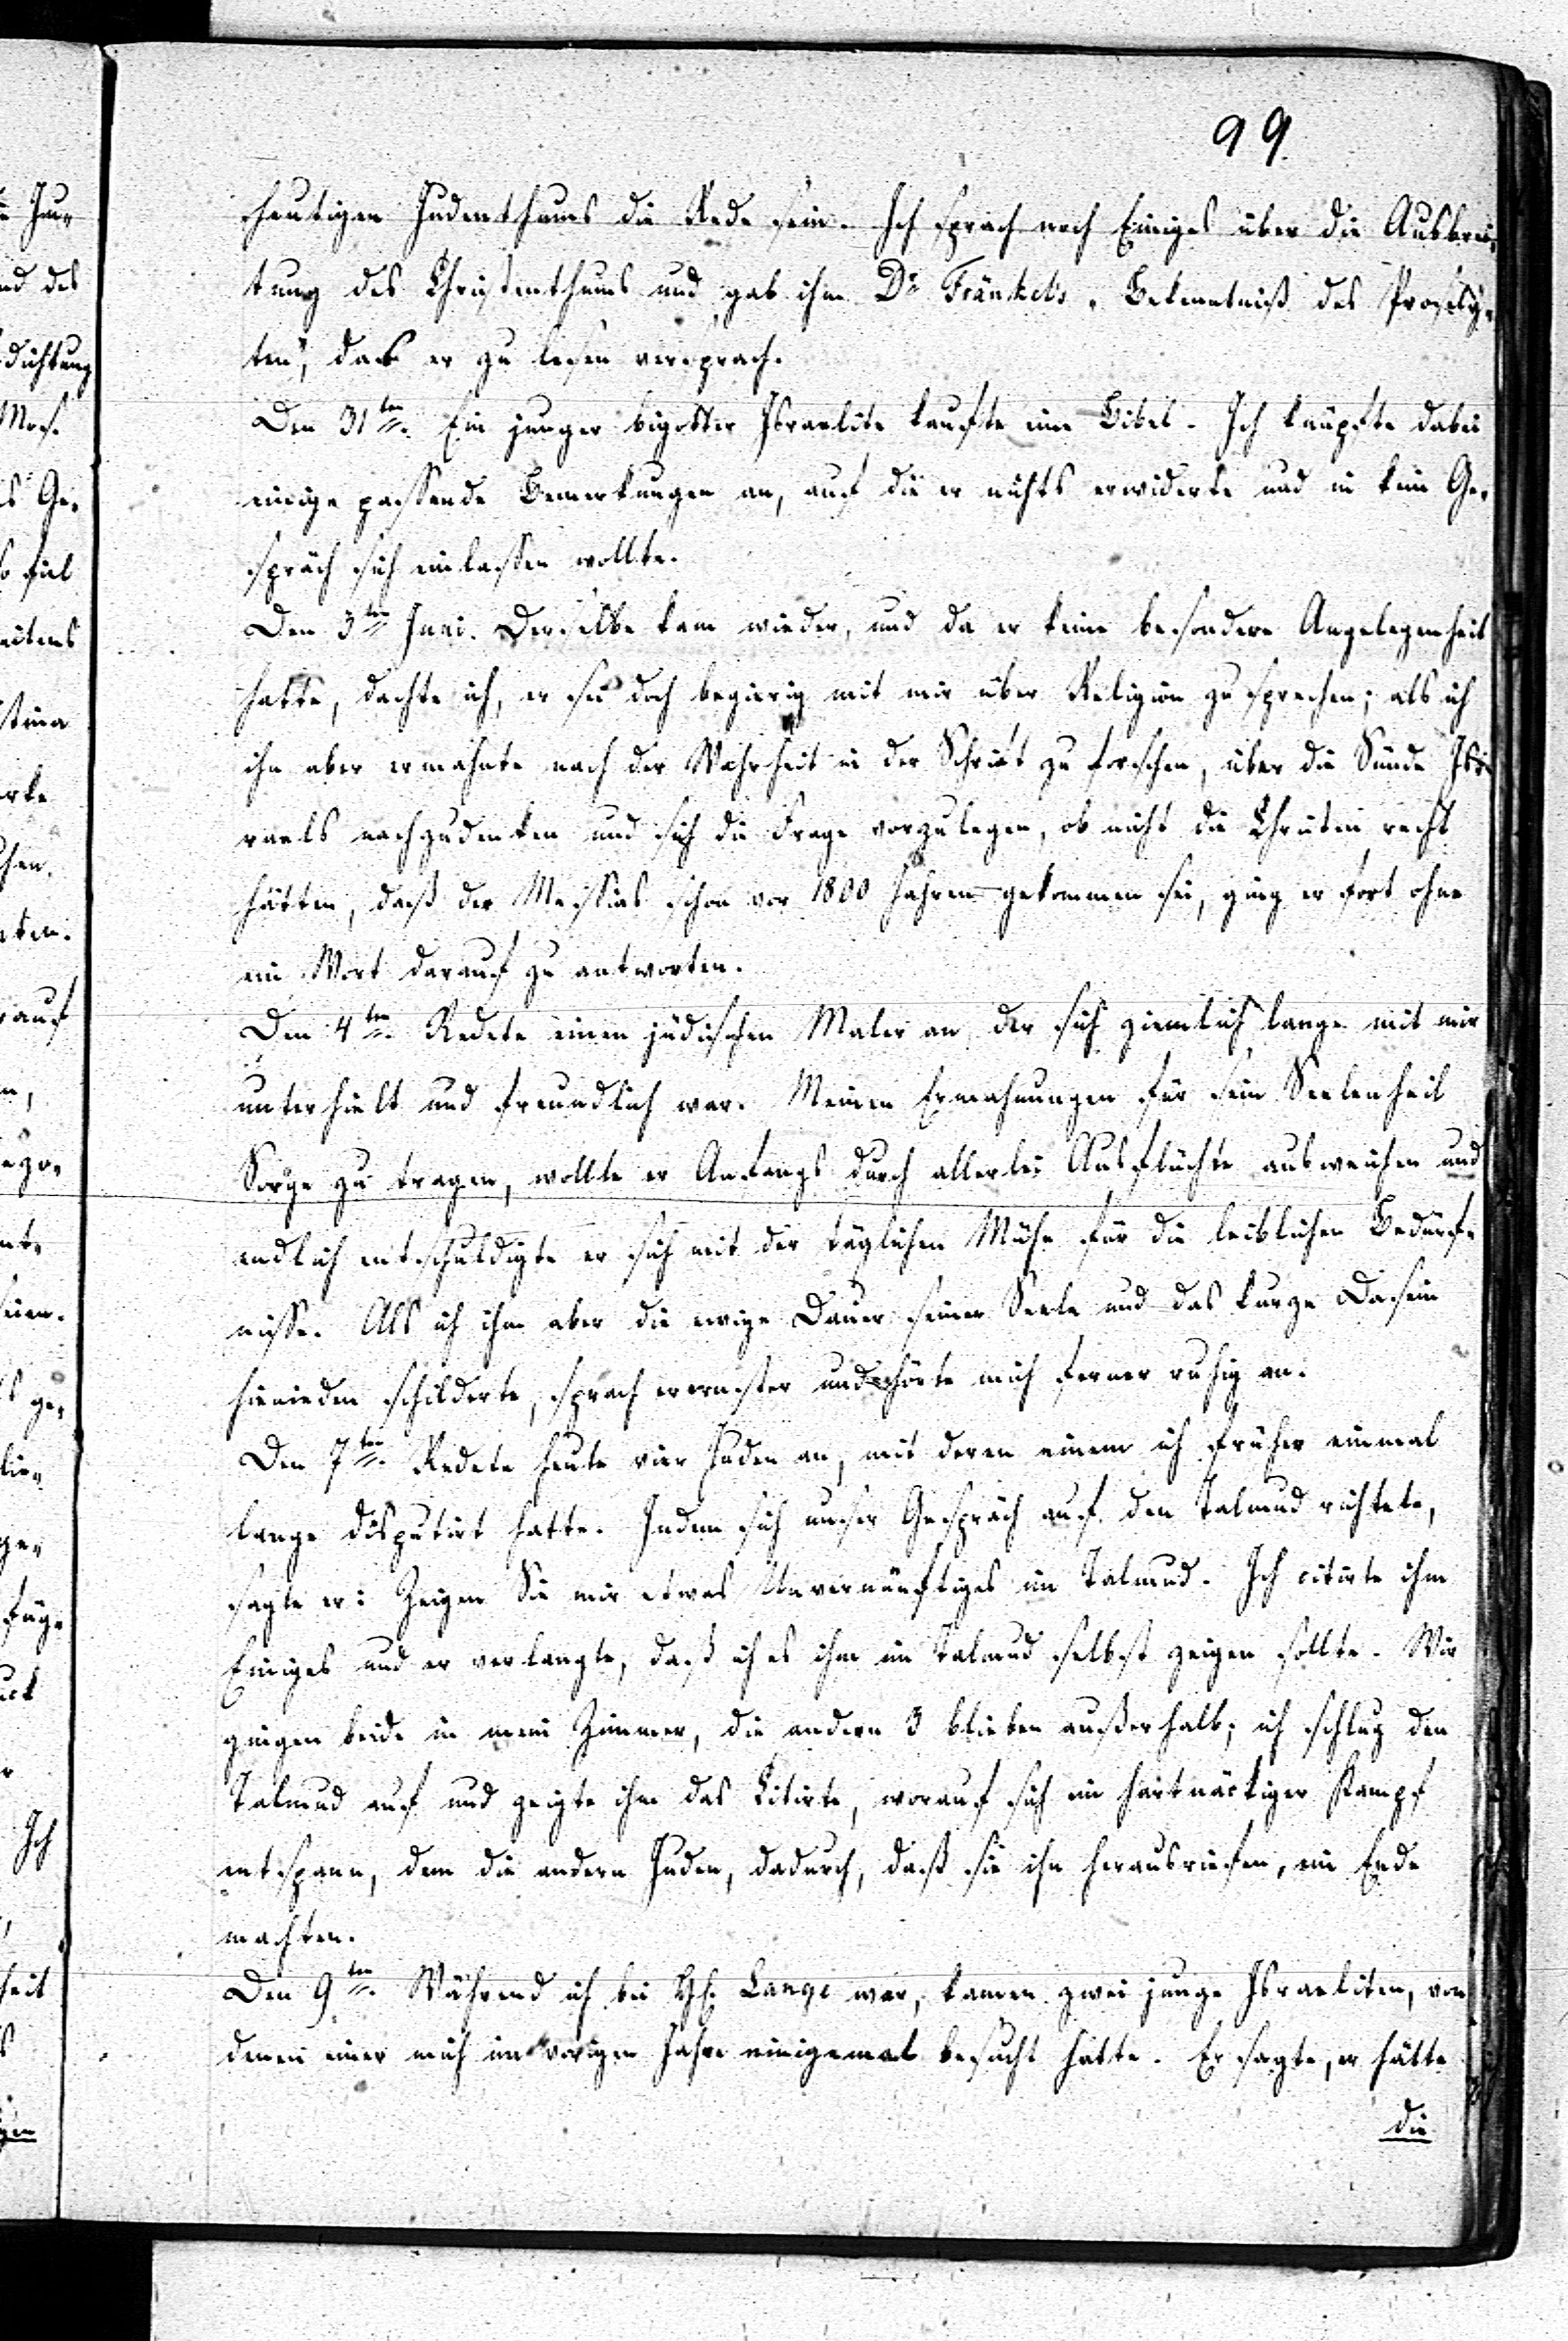 99.
heutigen Judenthums die Rede sein. Ich sprach noch Einiges über die Ausbrei-
tung des Christenthums und gab ihm Dr Fränkel's „Bekenntniß des Prosely-
ten“, das er zu lesen versprach.
Den 31ten. Ein junger bigotter Israelite kaufte eine Bibel. Ich knüpfte dabei
einige passende Bemerkungen an, auf die er nichts erwiderte und in kein Ge-
spräch sich einlassen wollte.
Den 3ten Juni. Derselbe kam wieder, und da er keine besondere Angelegenheit
hatte, dachte ich, er sei doch begierig mit mir über Religion zu sprechen; als ich
ihn aber ermahnte nach der Wahrheit in der Schrift zu forschen, über die Sünde Is-
raels nachzudenken und sich die Frage vorzulegen, ob nicht die Christen recht
hätten, daß der Messias schon vor 1800 Jahren gekommen sei, ging er fort ohne
ein Wort darauf zu antworten.
Den 4ten. Redete einen jüdischen Maler an, der sich ziemlich lange mit mir
unterhielt und freundlich war. Meinen Ermahnungen für sein Seelenheil
Sorge zu tragen, wollte er Anfangs durch allerlei Ausflüchte ausweichen und
endlich entschuldigte er sich mit der täglichen Mühe für die leiblichen Bedürf-
nisse. Als ich ihm aber die ewige Dauer seiner Seele und das kurze Dasein
hienieden schilderte, sprach er ernster und hörte mich ferner ruhig an.
Den 7ten. Redete heute vier Juden an, mit deren einem ich früher einmal
lange disputirt hatte. Indem sich unser Gespräch auf den Talmud richtete,
sagte er: Zeigen Sie mir etwas Unvernünftiges im Talmud. Ich citirte ihm
Einiges und er verlangte, daß ich es ihm im Talmud selbst zeigen sollte. Wir
gingen beide in mein Zimmer, die andern 3 blieben außerhalb; ich schlug den
Talmud auf und zeigte ihm das Citirte, worauf sich ein hartnäckiger Kampf
entspann, dem die andern Juden, dadurch, daß sie ihn herausriefen, ein Ende
machten.
Den 9ten. Während ich bei H. Lange war, kamen zwei junge Israeliten, von
denen einer mich im vorigen Jahre einigemal besucht hatte. Er sagte, er hätte
die